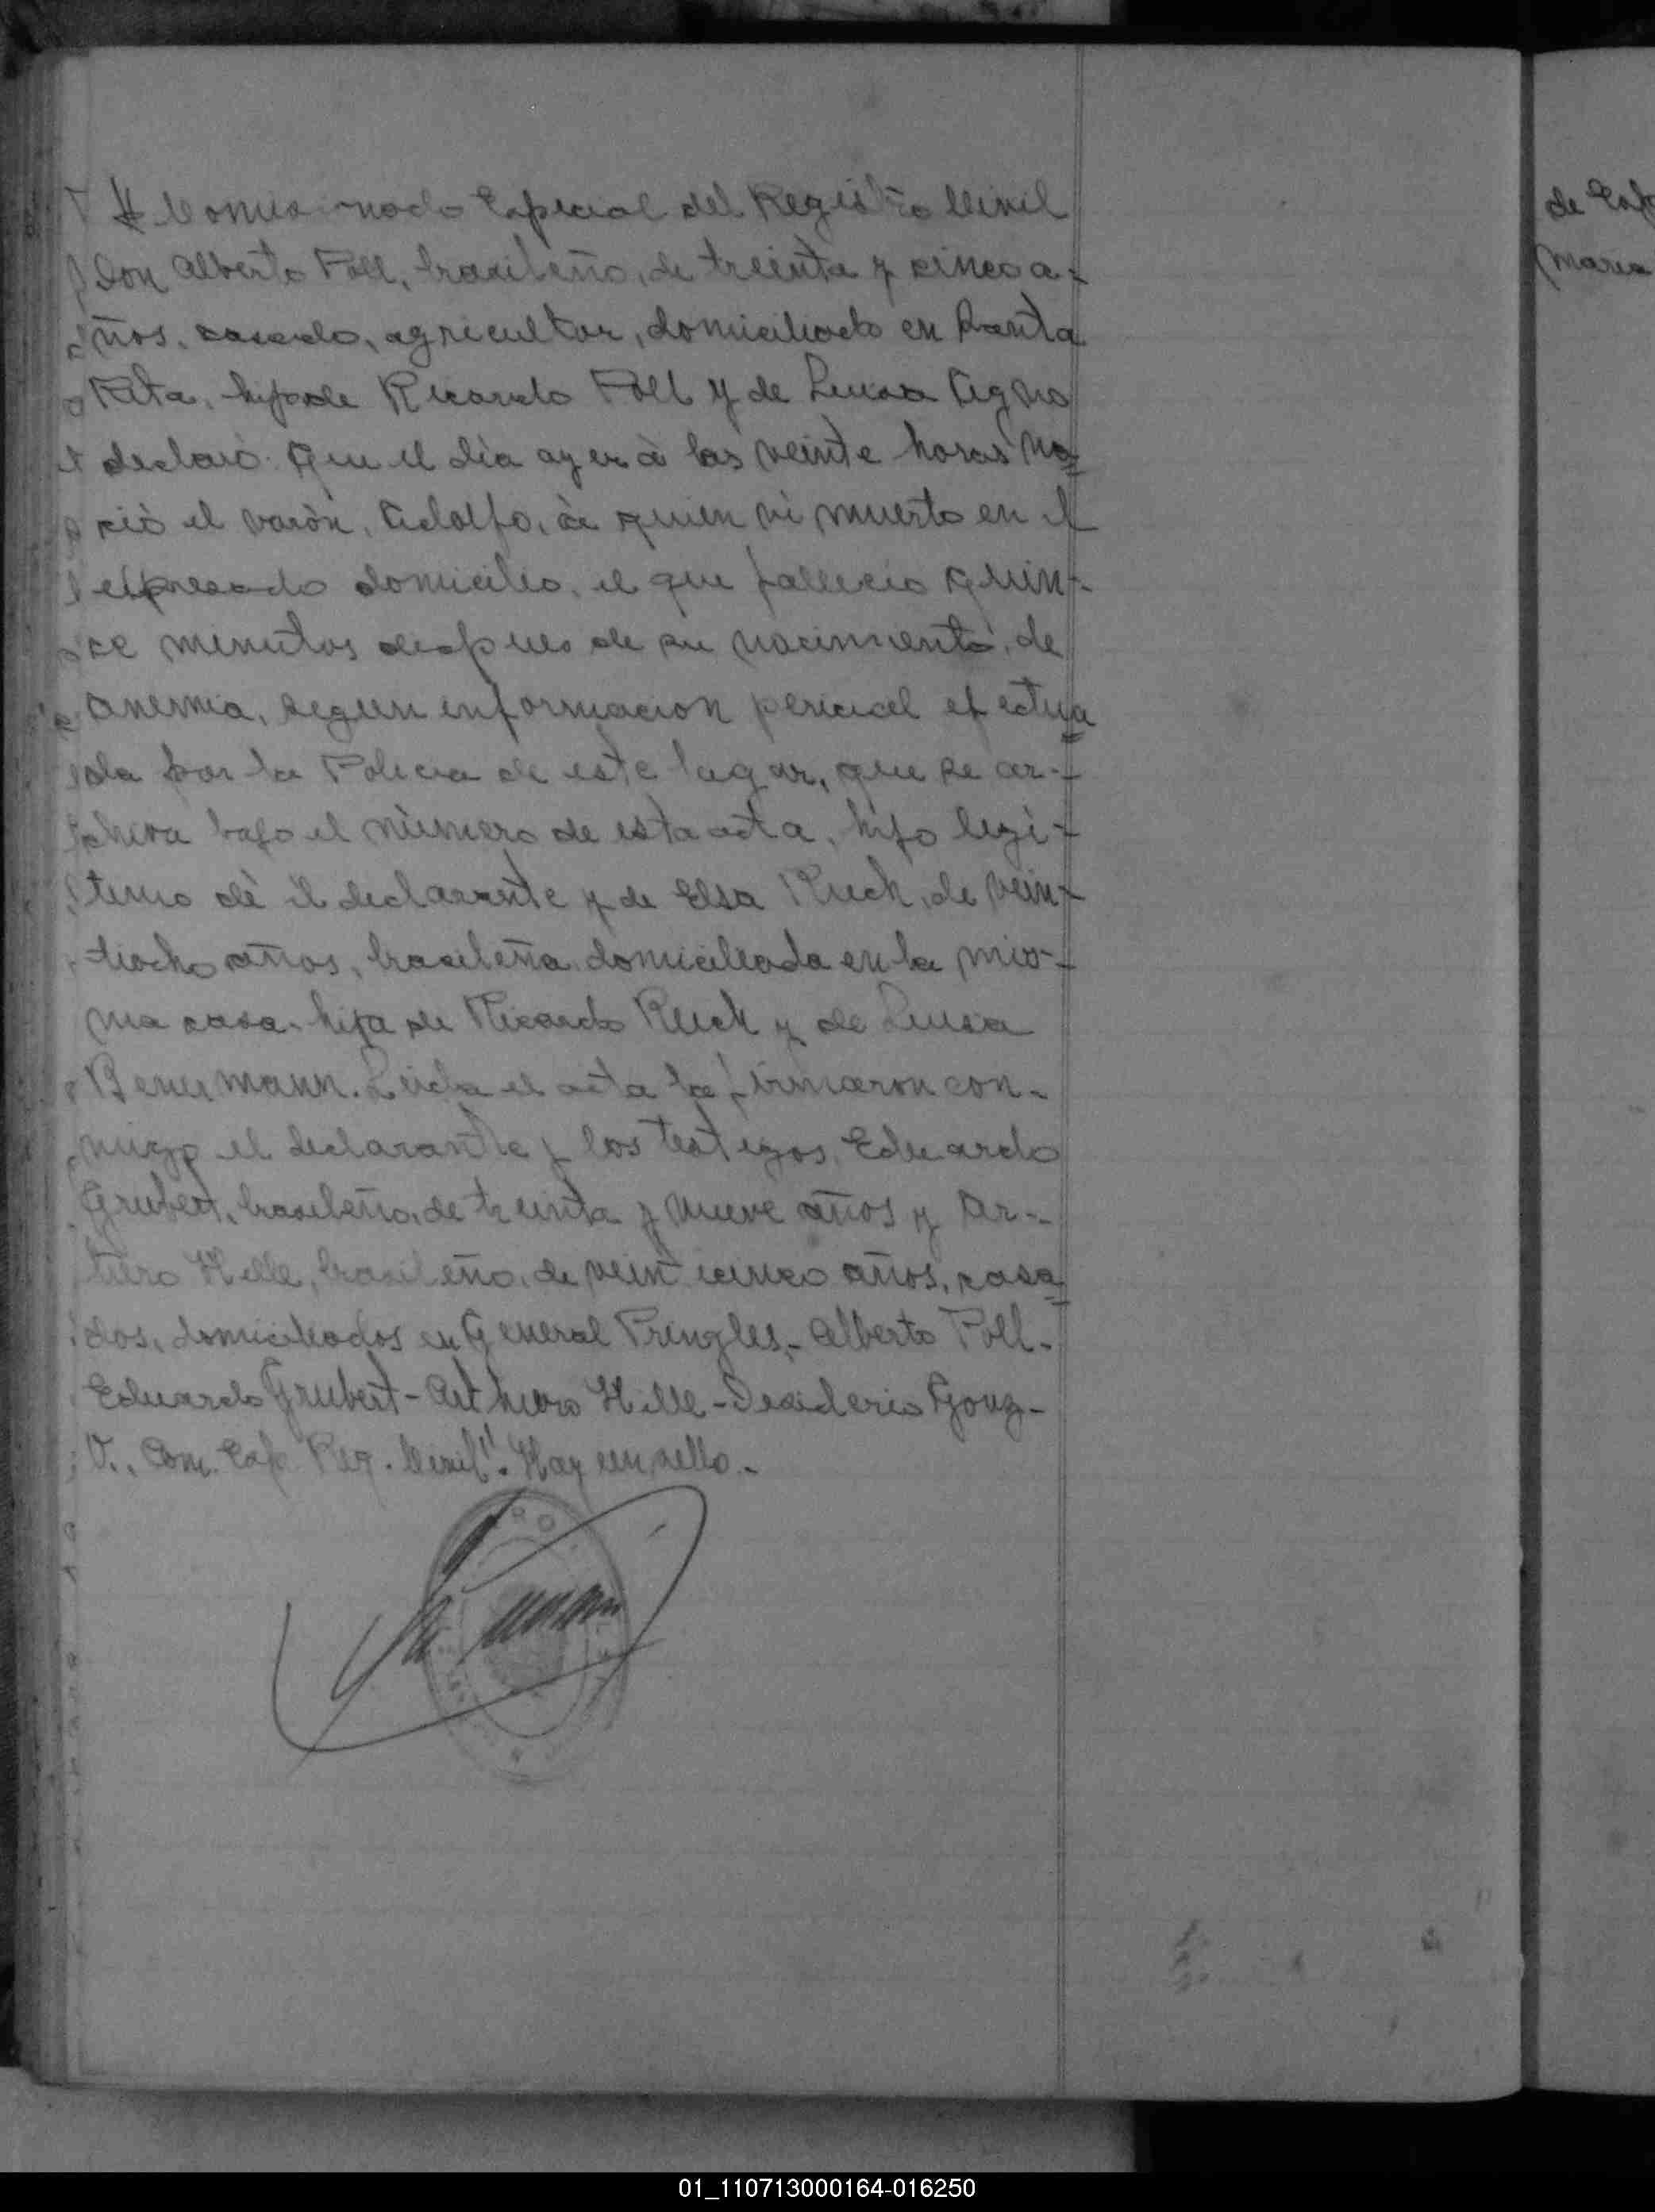 Comisionado Especial del Registro Civil
Don Alberto Poll, brasileño, de treinta y cinco a-
ños, casado, agricultor, domiciliado en Santa
Rita, hijo de Ricardo Poll y de Luisa
declaró: Que el dia ayer à las veinte horas na=
ciò el varòn, Adolfo, à quien vi muerto en el
expresado domicilio, el que falleciò quin-
ce minutos despues de su nacimiento, de
anemia, segun informacion pericial efectua
da por la Policia de este lugar, que se ar-
chiva bajo el nùmero de esta acta, hijo legi-
timo de el declarante y de Elsa Ruch, de vein-
tiocho años, brasileña domiciliada en la mis-
ma casa, hija de Ricardo Ruch y de Luisa
Leida el acta la firmaron con-
migo el declarante y los testigos, Eduardo
Grubert, brasileño, de treinta y nueve años y Ar-
turo Hille, brasileño, de veinticinco años, casa=
dos, domiciliados en General Pringles,- Alberto Poll-
Eduardo Grubert- Arthuro Hille- Desiderio Gonz-
V., Com. Esp. Reg. Civil". Hay un sello.-
de Esp
Maria
01_110713000164-016250